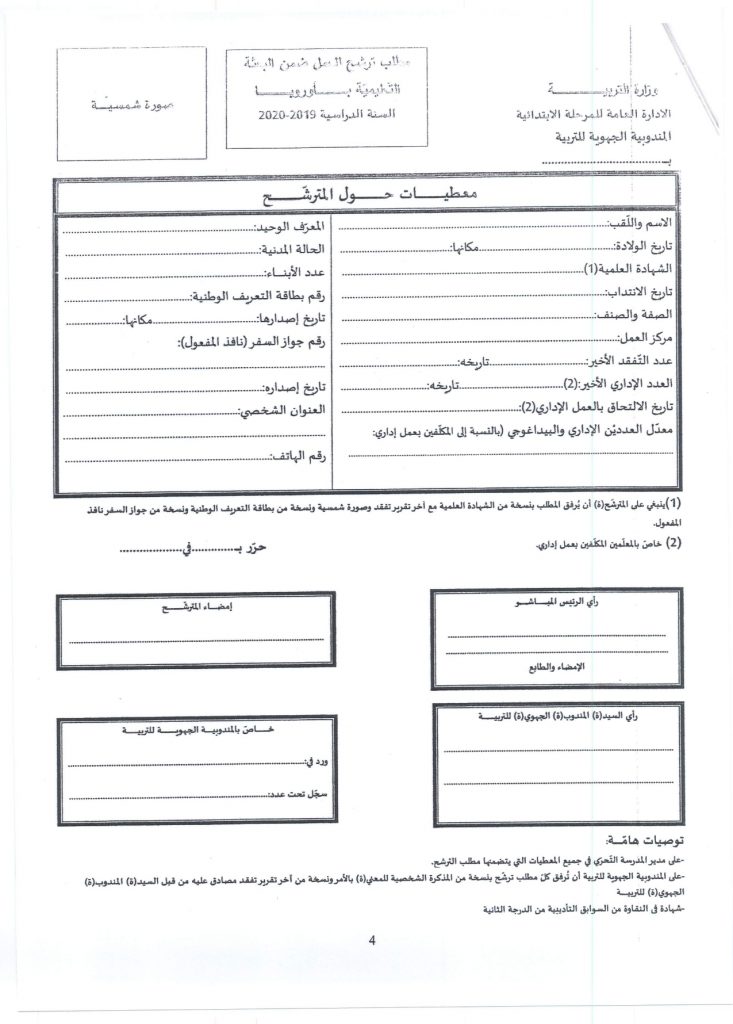 وزارة التربيـــــــــة
الادارة العامة للمرحلة الابتدائية
المندوبية الجهوية للتربية
بـ..................................
مطلب ترشح للعمل ضمن البعثة
التعليميّة بـــــأوروبـــــا
السنة الدراسية 2019-2020
صورة شمسيّـــة
معطيـــات حـــول المترشّـــح
الاسم واللّقب:..................................
تاريخ الولادة:..................................مكانها:..................................
الشهادة العلمية(1)..................................
تاريخ الانتداب:..................................
الصفة والصنف:..................................
مركز العمل:..................................
عدد التّفقد الأخير:..................................تاريخه:..................................
العدد الإداري الأخير:(2)..................................تاريخه:..................................
تاريخ الالتحاق بالعمل الإداري(2):..................................
معدّل العدديْن الإداري والبيداغوجي (بالنسبة إلى المكلّفين بعمل إداري):
..................................
المعرّف الوحيد:..................................
الحالة المدنية:..................................
عدد الأبنـــاء:..................................
رقم بطاقة التعريف الوطنية:..................................
تاريخ إصدارها:..................................مكانها:..................................
رقم جواز السفر (نافذ المفعول):
..................................
تاريخ إصداره:..................................
العنوان الشخصي:..................................
..................................
رقم الهاتف:..................................
(1)ينبغي على المترشّح(ة) أن يُرفق المطلب بنسخة من الشهادة العلمية مع آخر تقرير تفقد وصورة شمسية ونسخة من بطاقة التعريف الوطنية ونسخة من جواز السفر نافذ
المفعول.
(2) خاصّ بالمعلّمين المكلّفين بعمل إداري.
حرّر بـ..............في...................
رأي الرئيس المبـــاشـــر
..................................
..................................
الإمضاء والطابع
إمضـــاء المترشّـــح
..................................
رأي السيد(ة) المندوب(ة) الجهوي(ة) للتربيـــة
..................................
..................................
خـــاصّ بالمندوبيـة الجهويـــة للتربيـــة
ورد في:..................................
سجّل تحت عدد:..................................
توصيات هامّـــة:
-على مدير المدرسة التّحرّي في جميع المعطيات التي يتضمنها مطلب الترشح.
-على المندوبية الجهوية للتربية أن تُرفق كلّ مطلب ترشّح بنسخة من المذكرة الشخصية للمعني(ة) بالأمر ونسخة من آخر تقرير تفقد مصادق عليه من قبل السيد(ة) المندوب(ة)
الجهوي(ة) للتربيـــة
-شهادة في النقاوة من السوابق التأديبية من الدرجة الثانية
4